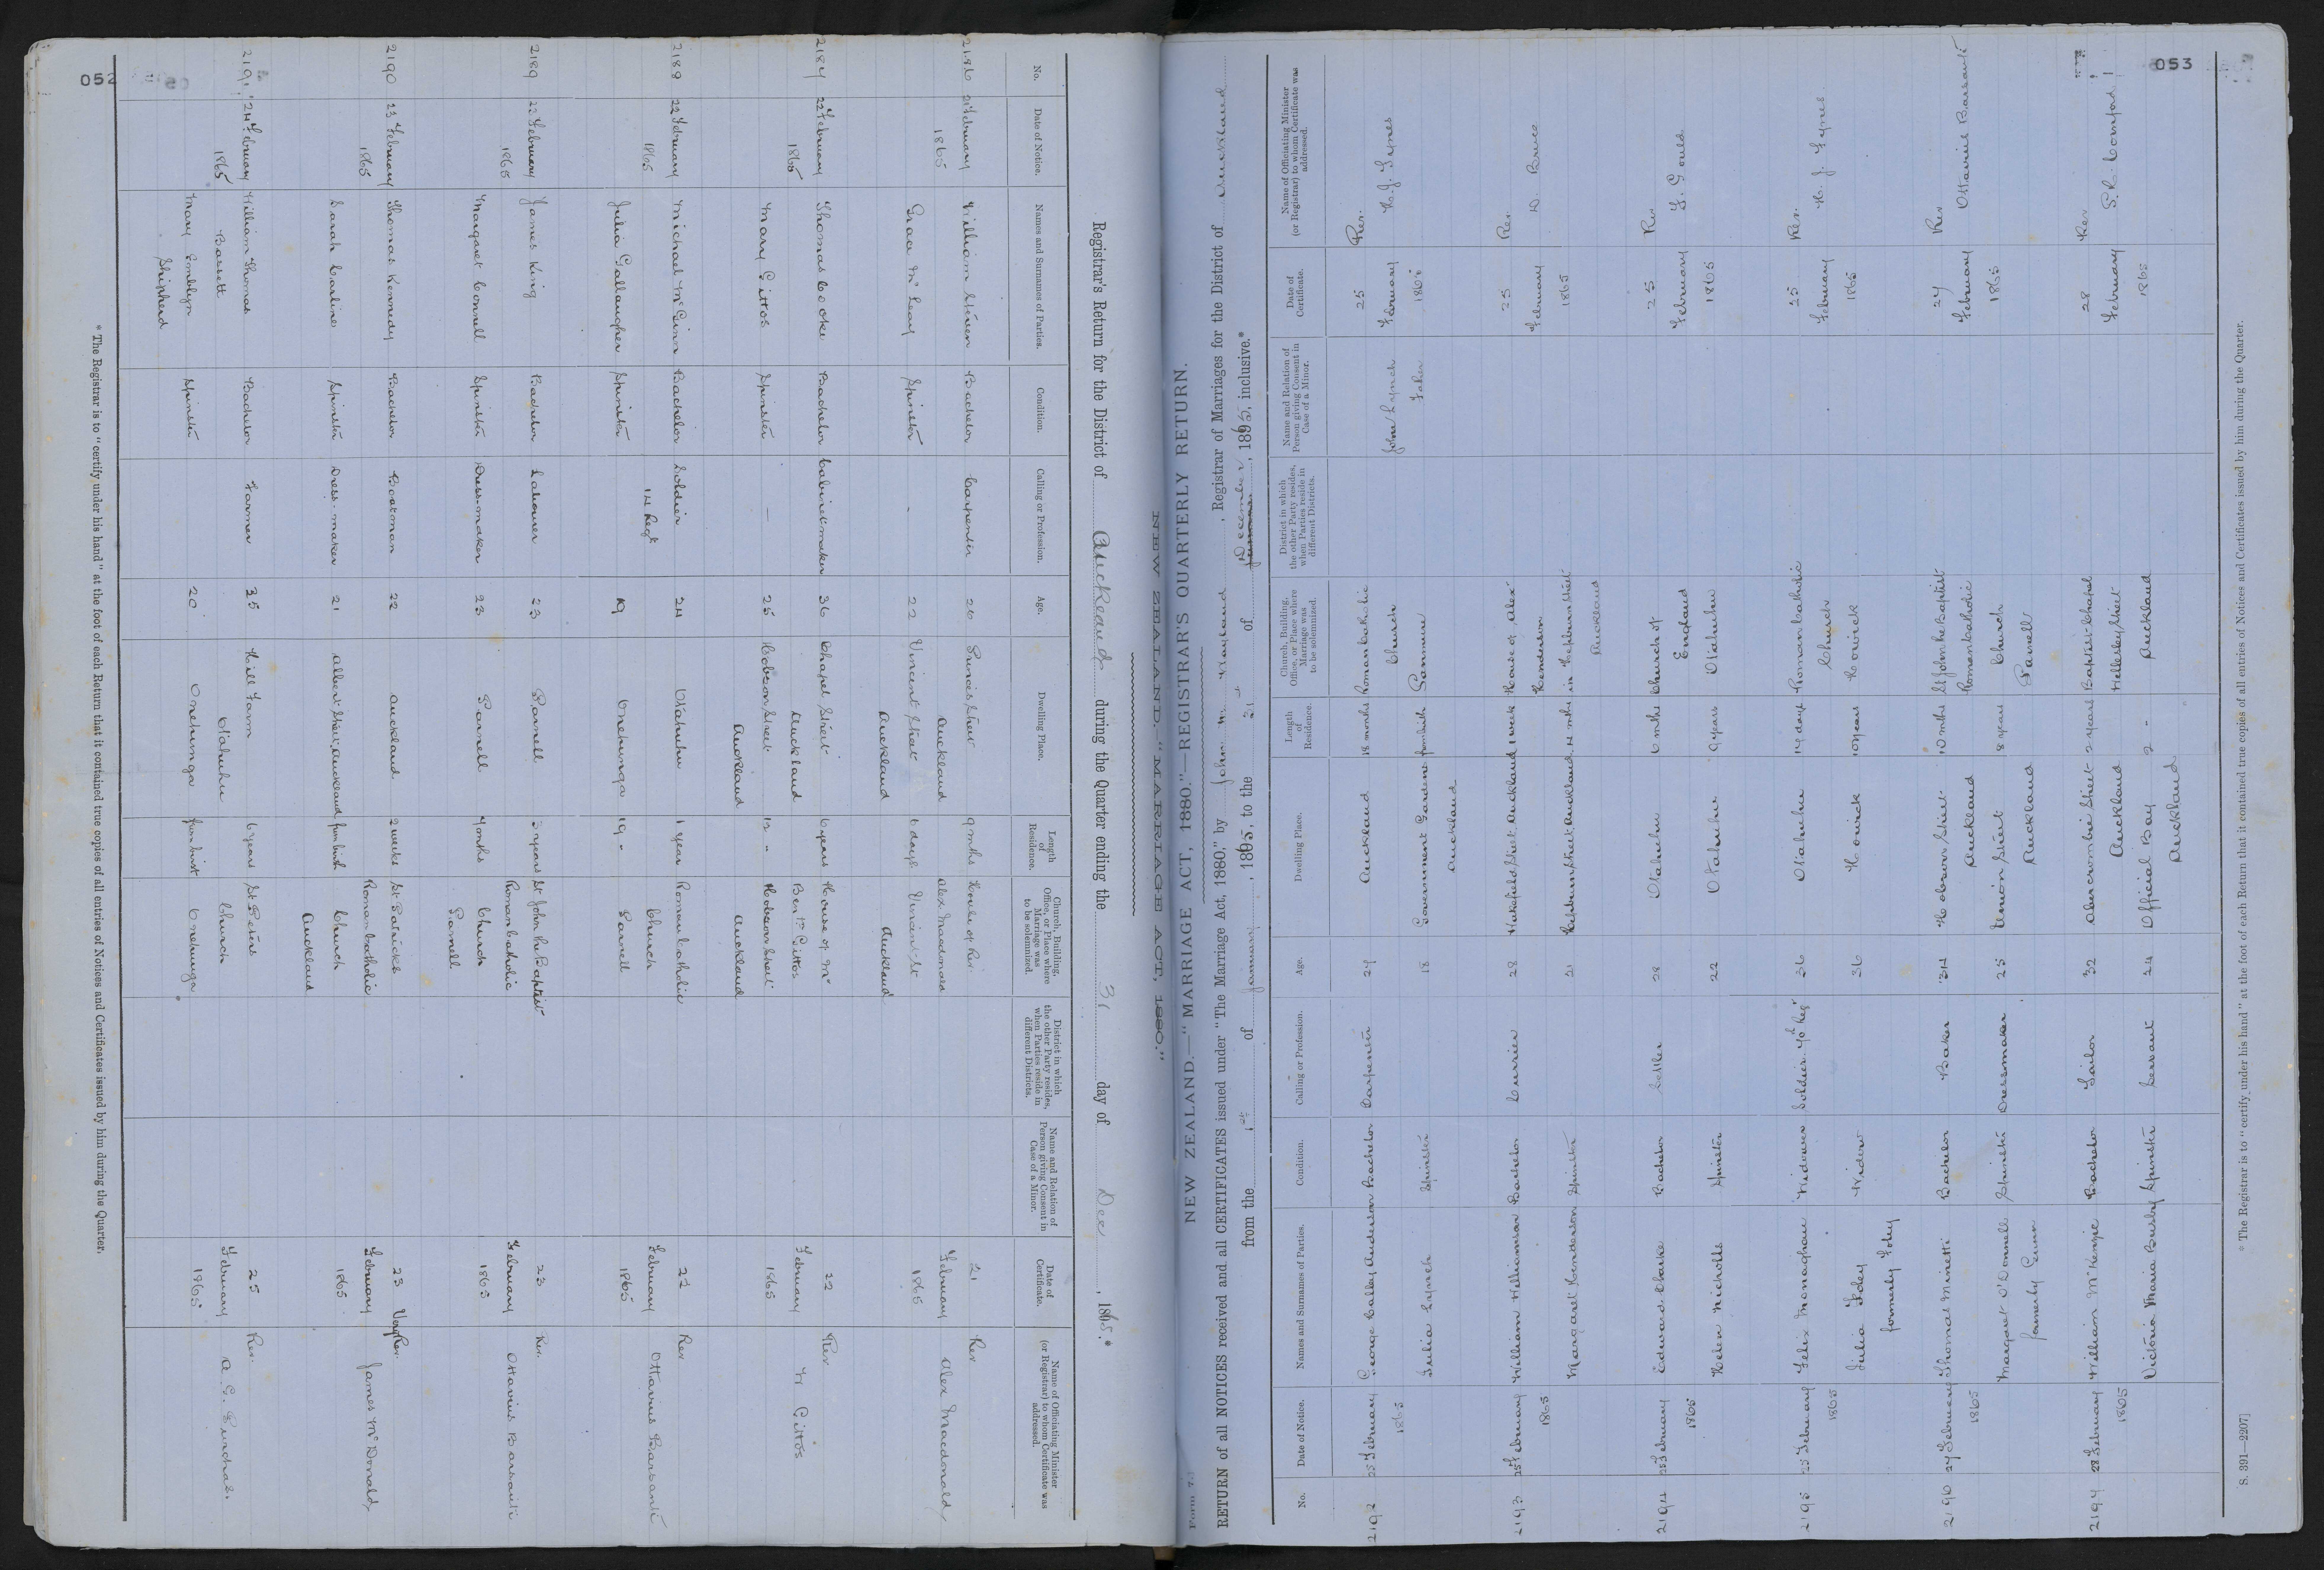 052
NEW ZEALAND.—"MARRIAGE ACT, 1880."
Registrar's Return for the District of Auckland during the Quarter ending the 31 day of Dec, 1865.*
No.
Date of Notice.
Names and Surnames of Parties.
Condition.
Calling or Profession.
Age.
Dwelling Place.
Length of Residence.
Church, Building, Office, or Place where Marriage was to be solemnized.
District in which the other Party resides, when Parties reside in different Districts.
Name and Relation of Person giving Consent in Case of a Minor.
Date of Certificate.
Name of Officiating Minister (or Registrar) to whom Certificate was addressed.
2186 21 February 1865
William Bachelor Carpenter 26 Street Auckland 9 mths House of Rev. Alex Macdonald 21 February 1865 Rev Alex Macdonald
Grace McLeay Spinster - 22 Vincent Street Auckland 6 days Vincent St Auckland
2187 22 February 1865
Thomas Cooke Bachelor Cabinetmaker 36 Chapel Street Auckland 6 years House of Mr Gittos 22 February 1865 Rev W Gittos
Mary Gittos Spinster — 25 Hobson Street Auckland 12 - Hobson Street Auckland
2188 22 February 1865
Michael McGinn Bachelor Soldier 14 Regt 24 Otahuhu 1 year Roman Catholic Church Parnell 22 February 1865 Rev Ottavius Barsanti
Julia Gallaugher Spinster 19 Onehunga 19 -
2189 22 February 1865
James King Bachelor Labourer 23 Parnell 3 years St John the Baptist Roman Catholic Church Parnell 23 February 1865 Rev. Ottavius Barsanti
Margaret Connell Spinster Dress-maker 23 Parnell 7 months
2190 23 February 1865
Thomas Kennedy Bachelor Boatman 22 Auckland 2 weeks St Patricks Roman Catholic Church Auckland 23 February 1865 Very Rev. James McDonald
Sarah Carline Spinster Dress-maker 21 Albert Street, Auckland from birth
2191 24 February 1865
William Thomas Bassett Bachelor Farmer 35 Hill Farm Otahuhu 6 years St Peters Church Onehunga 25 February 1865 Rev. A. G. Purchas.
Mary Shepherd Spinster 20 Onehunga from birth
* The Registrar is to "certify under his hand" at the foot of each Return that it contained true copies of all entries of Notices and Certificates issued by him during the Quarter.
053
Form 7.]
NEW ZEALAND.—"MARRIAGE ACT, 1880."—REGISTRAR'S QUARTERLY RETURN.
RETURN of all NOTICES received and all CERTIFICATES issued under "The Marriage Act, 1880," by John, Registrar of Marriages for the District of Auckland
from the 1st of January, 1865, to the 31st of December, 1865, inclusive.*
No.
Date of Notice.
Names and Surnames of Parties.
Condition.
Calling or Profession.
Age.
Dwelling Place.
Length of Residence.
Church, Building, Office, or Place where Marriage was to be solemnized.
District in which the other Party resides, when Parties reside in different Districts.
Name and Relation of Person giving Consent in Case of a Minor.
Date of Certificate.
Name of Officiating Minister (or Registrar) to whom Certificate was addressed.
2192 25 February 1865
George Anderson Bachelor Carpenter 27 Auckland 18 months Roman Catholic Church Panmure 25 February 1865 Rev.
Julia Lynch Spinster 18 Government Gardens Auckland from birth John Lynch Father
2193 25 February 1865
William Williamson Bachelor Currier 28 Wakefield Street, Auckland 1 week House of Alex Henderson in Hepburn Street Auckland 25 February 1865 Rev. D. Bruce
Margaret Henderson Spinster 21 Hepburn Street Auckland
2194 25 February 1865
Edward Clarke Bachelor Settler 28 Otahuhu 6 mths Church of England Otahuhu 25 February 1865 Rev F. Gould
Helen Nicholls Spinster 22 Otahuhu 9 years
2195 25 February 1865
Felix Monaghan Widower Soldier 70th Regt 36 Otahuhu 14 days Roman Catholic Church Howick 25 February 1865 Rev.
Julia Foley formerly Widow 36 Howick 10 years
2196 27 February 1865
Thomas Minetti Bachelor Baker 34 Hobson Street Auckland 10 mths St John the Baptist Roman Catholic Church Parnell 27 February 1865 Rev Ottavius Barsanti
Margaret O'Donnell formerly Spinster Dressmaker 25 Union Street Auckland 8 years
2197 28 February 1865
William McKenzie Bachelor Sailor 32 Abercrombie Street Auckland 2 years Baptist Chapel Wellesley Street Auckland 28 February 1865 Rev P. H. Cornford
Victoria Maria Busby Spinster Servant 24 Official Bay Auckland 2 -
* The Registrar is to "certify under his hand" at the foot of each Return that it contained true copies of all entries of Notices and Certificates issued by him during the Quarter.
S. 391—2207]